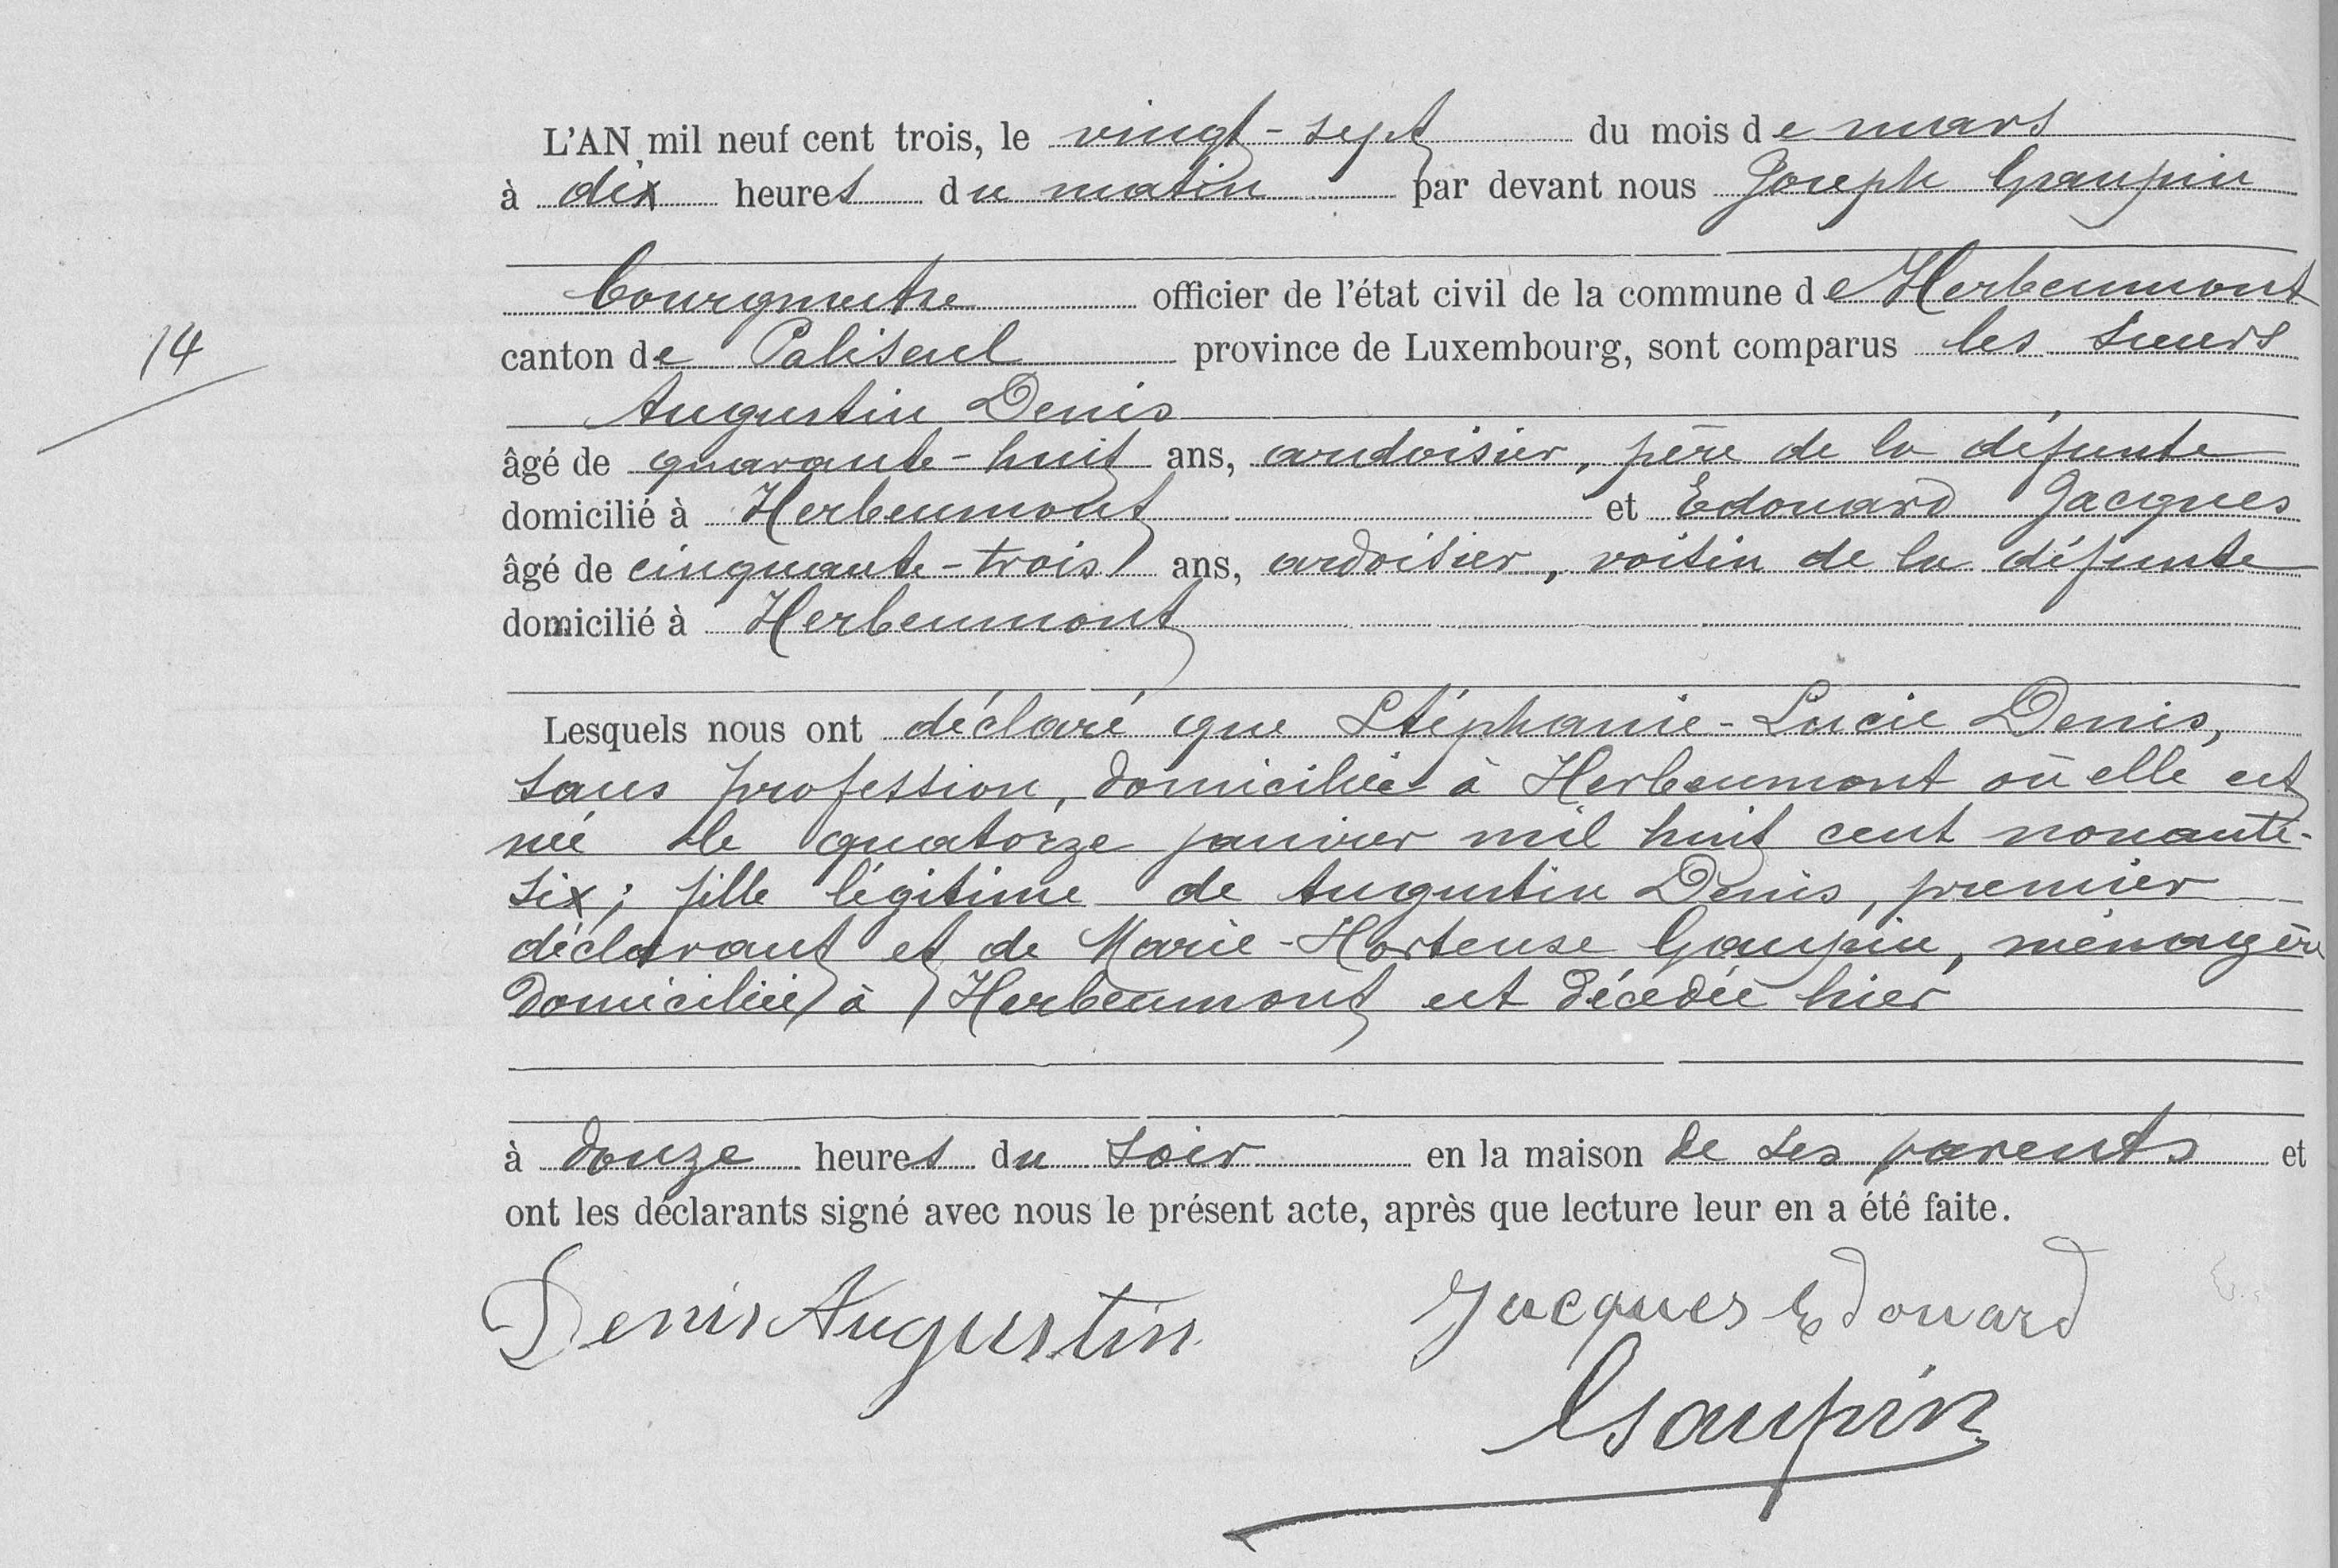 L'AN mil neuf cent trois, le vingt-sept du mois de mars
à dix heures du matin par devant nous Joseph Gaupin
bourgmestre officier de l'état civil de la commune de Herbeumont
14
canton de Paliseul province de Luxembourg, sont comparus les sieurs
Augustin Denis
âgé de quarante-huit ans, ardoisier, père de la défunte
domicilié à Herbeumont et Edouard Jacques
âgé de cinquante-trois ans, ardoisier, voisin de la défunte
domicilié à Herbeumont
Lesquels nous ont déclaré que Stéphanie-Lucie Denis,
sans profession, domiciliée à Herbeumont où elle est
née le quatorze janvier mil huit cent nonante-
six; fille légitime de Augustin Denis, premier
déclarant et de Marie-Hortense Gaupin, ménagère
domiciliée à Herbeumont est décédée hier
à douze heures du soir en la maison de ses parents et
ont les déclarants signé avec nous le présent acte, après que lecture leur en a été faite.
Denis Augustin Jacques Edouard
Gaupin